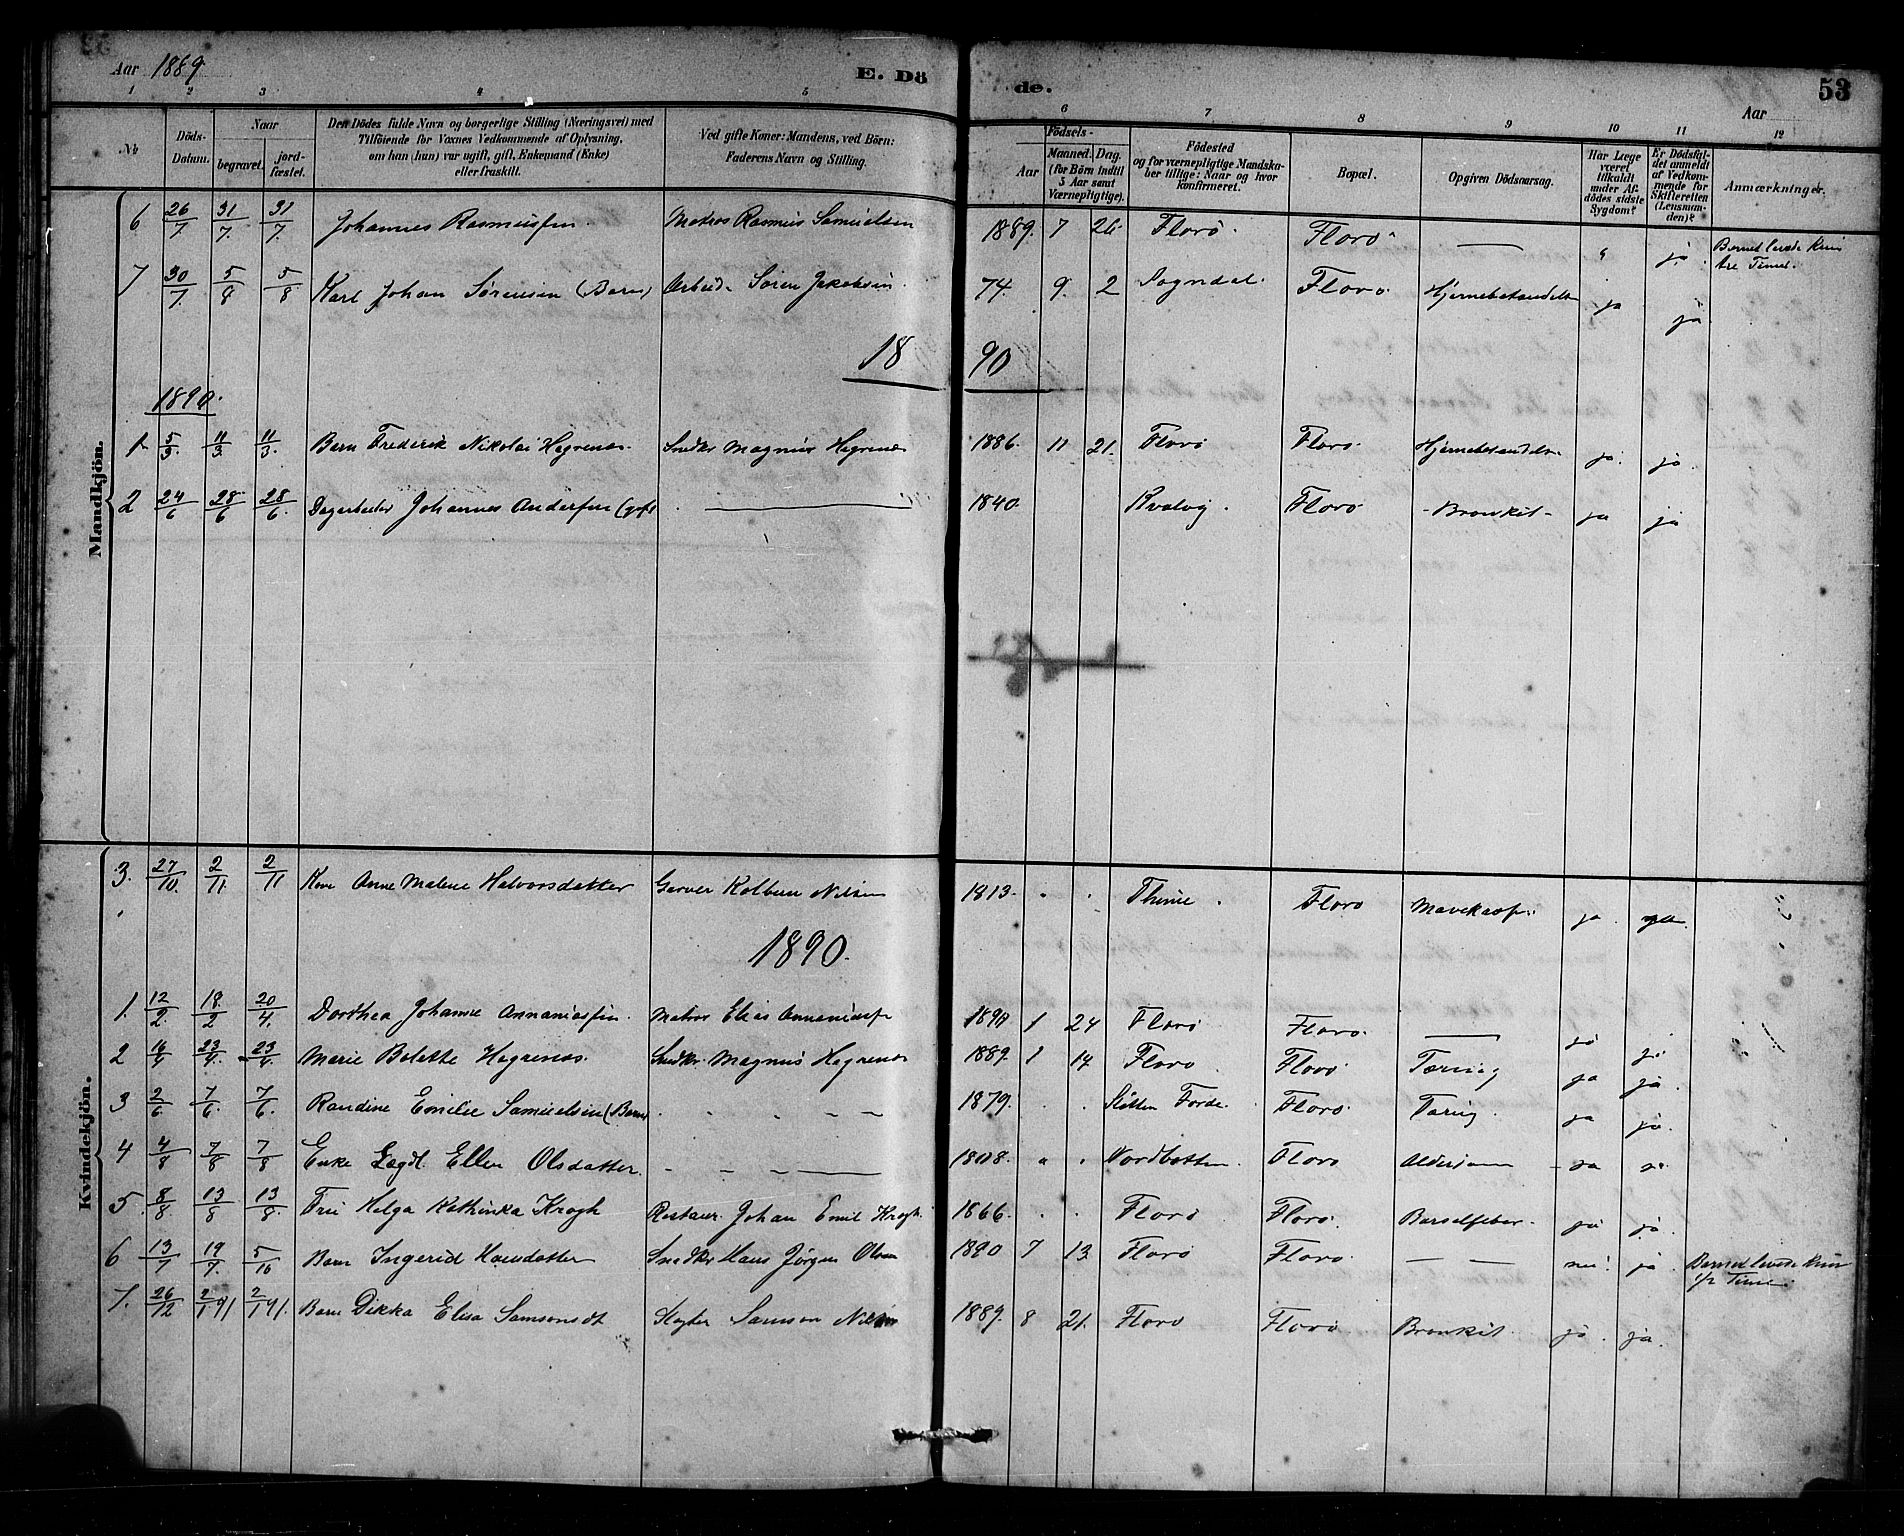 Aar 1889. E. Dö de. Aar 53
1 2 3 4 5 6 7 8 9 10 11 12
No. Döds-Datum. Naar begravet. jordfæstet. Den Dödes fulde Navn og borgerlige Stilling (Næringsvei) med Tilföiende for Voxnes Vedkommende af Oplysning, om han (hun) var ugift, gift, Enkemand (Enke) eller fraskilt. Ved gifte Koner: Mandens, ved Börn: Faderens Navn og Stilling. Födsels- Aar Maaned. Dag. (for Börn indtil 5 Aar samt Værnepligtige). Födested og for værnepligtige Mandskaber tillige: Naar og hvor konfirmeret. Bopæl. Opgiven Dödsaarsag. Har Læge været tilkaldt under Afdödes sidste Sygdom? Er Dödsfaldet anmeldt af Vedkommende for Skifteretten (Lensmanden)? Anmærkninger.
Mandkjön.
6 26/7. 31/7. 31/7. Johannes Rasmussen Matros Rasmus Samuelsen 1889. 7 26 Florö. Florö — " ja. Barnet levede kun tre Timer.
7 30/7 5/8 5/8 Karl Johan Sørensen (Barn) Arbeid. Søren Jakobsen. 74. 9. 2 Sogndal. Florö Hjernebetændelse ja ja
18 90
1890.
1. 5/3. 11/3. 11/3. Barn Frederik Nikolai Hegrenæs. Snedker Magnus Hegrenæs 1886. 11 21. Florö Florö. Hjernebetændelse. ja. ja.
2 24/6 28/6 28/6. Dagarbeider Johannes Andersen (gift — 1840. Kvalvig. Florö -Bronkit- ja ja
Kvindekjön.
3. 27/10. 2/11. 2/11 Kone Anne Malene Halvorsdatter Garver Kolben Nilsen 1813. " " Florö ja.
1890.
1. 12/2. 18/2 20/4. Dorthea Johanne Annaniassen. Matros Elias Annaniass 1890 1 24 Florö Florö. — ja ja
2 16/4 23/4. 23/4 Marie Bolette Hegrenæs. Snedker. Magnus Hegrenæs 1889. 1 14 Florö Florö Tæring ja ja
3 2/6 7/6. 7/6. Randine Emilie Samuelsen (Barn) - - - - 1879. " " Førde. Florö Tæring. ja ja.
4 4/8 7/8 7/8 Enke Lægdl. Ellen Olsdatter. - - - — 1808. " " Nordbotten. Florö Alderdom
5. 8/8. 13/8 13/8. Fru Helga Kathinka Krogh Restaur. Johan Emil Krogh. 1866. " " Florö Florö. Barselfeber. ja ja.
6 13/7 19/7. 5/10 Barn Ingerid Hansdatter Snedker Hans Jørgen Olsen 1890 7 13. Florö Florö. — — nei ja. Barnet levede kun 1/2 Time.
7. 26/12 2/1 91 2/1 91. Barn Dikka Elisa Samsonsdt Samson Nilsen 1889. 8 21. Florö Florö Bronkit. ja. ja.